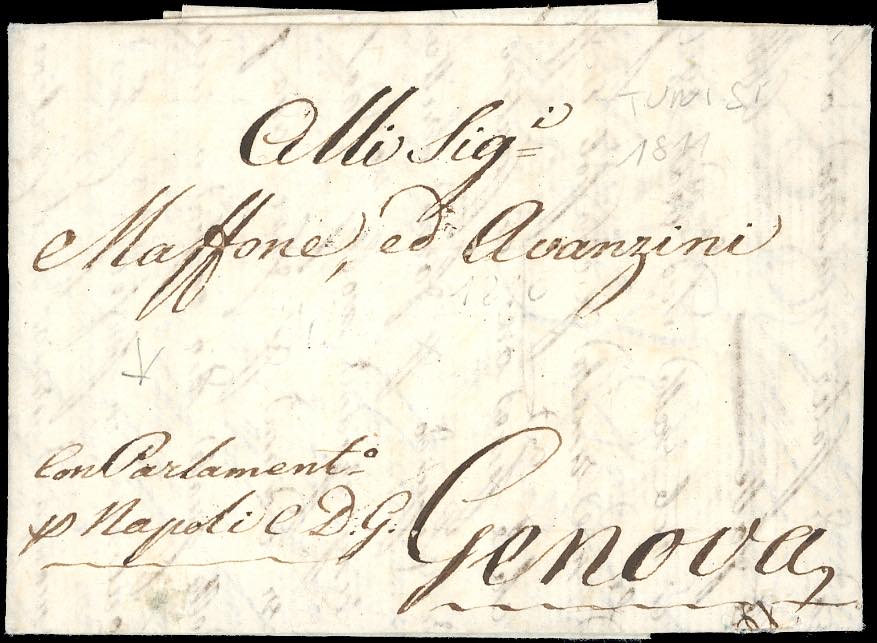 Alli Sig.i
TUNISI
1811
Maffone, ed Avanzini
Con Parlament.o
p Napoli e D. G.
Genova